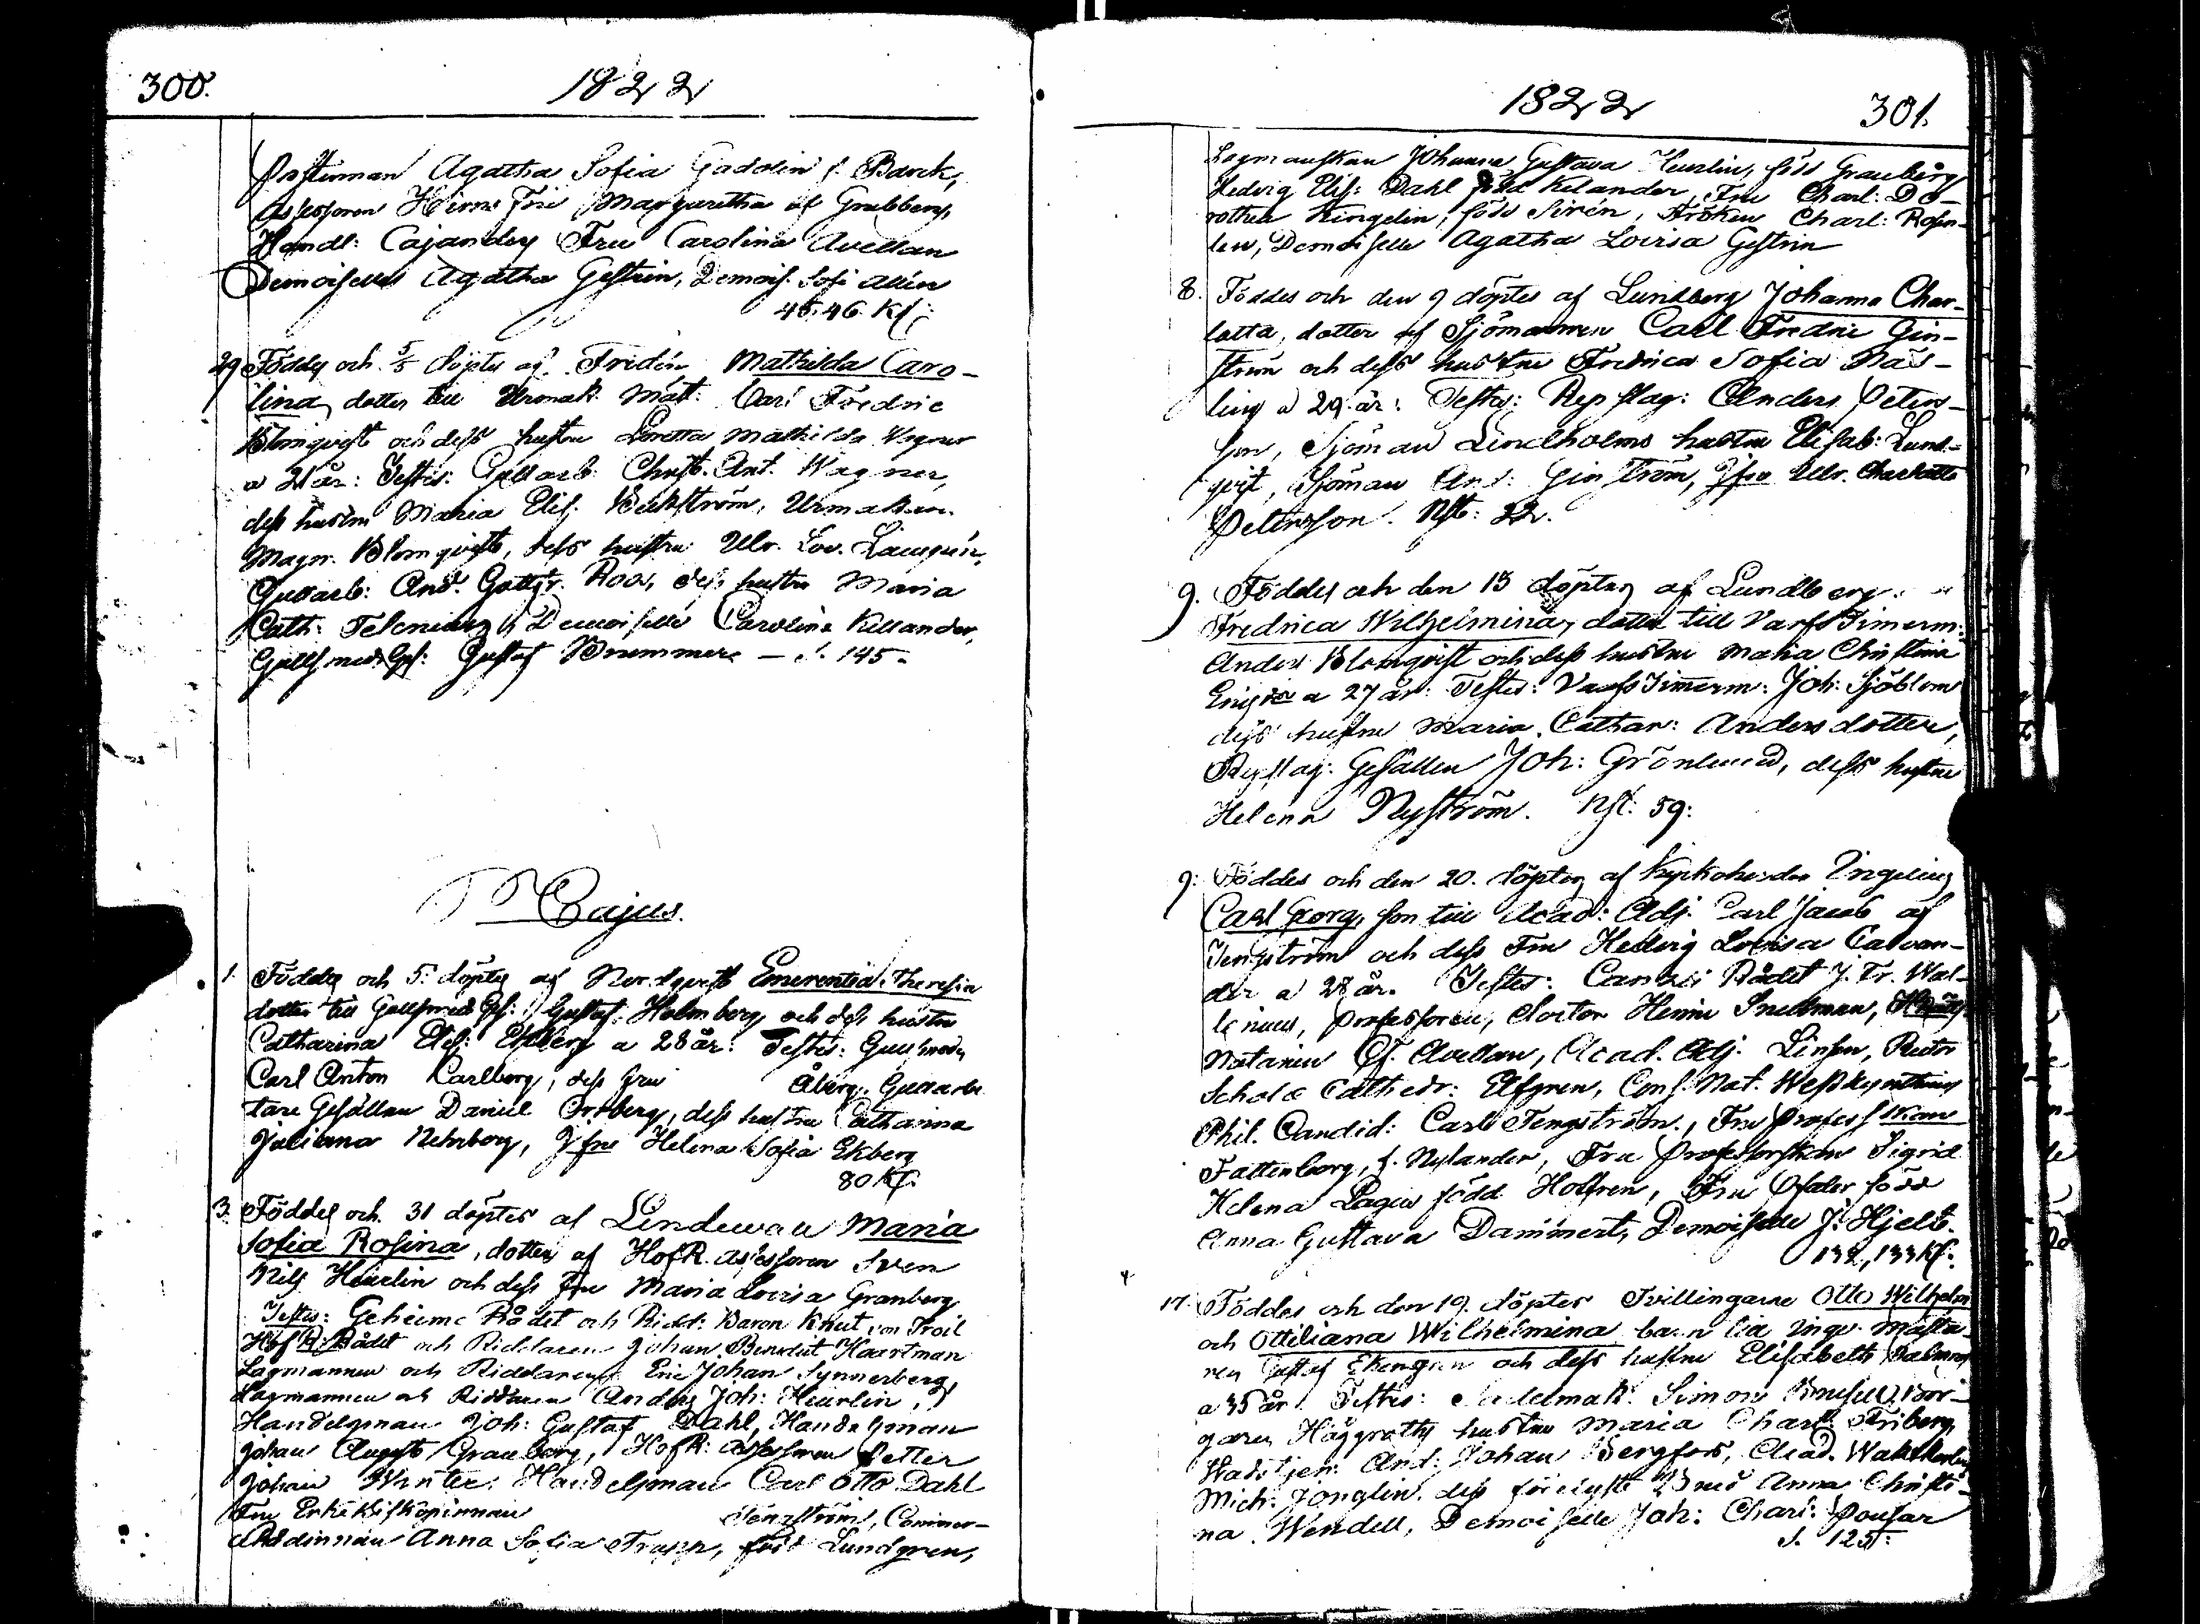 300.
1822
Prostinnan Agatha Sofia Gadolin f. Barck,
Assessoren Hirns Fru Margaretha af Grubbens,
Handl: Cajanders Fru Carolina Avellan
Demoiselles Agatha Gestrin, Demois. Sofi Allén
45.46. Kl:
29 Föddes och 5/5 döptes af Fridén Mathilda Caro-
lina, dotter till Urmak. Mäst: Carl Fredric
Blomqvist och dess hustru Loretta Mathilda Wagner
a 21 år: Testes: Gullarb: Christ. Ant. Wagner,
dess hustru Maria Elis. Bäckström, Urmakaren
Magn. Blomqvist, dess hustru Ulr. Lov.
Gullarb: And. Gottfr. Roos, dess hustru Maria
Cath: Demoiselle Carolina Killander,
Gullsmeds Ges: Gustaf Brummer — S. 145.
Majus.
1. Föddes och 5. döptes af Nordqvist Emerentia Theresia
dotter till Gullsmeds Ges: Gustaf Holmberg och dess hustru
Catharina Elis: Ekberg a 28 år: Testes: Gullsmeden
Carl Anton Carlberg, dess fru Åberg, Gullarbe
tare Gesällen Daniel Örnberg, dess hustru Catharina
Juliana Rehnborg, Jfru Helena Sofia Ekberg
80 Kl.
3. Föddes och 31 döptes af Lindewall Maria
Sofia Rosina, dotter af HofR. Assessoren Sven
Nils Heurlin och dess fru Maria Lovisa Granberg
Testes: Geheime Rådet och Ridd: Baron Knut von Troil
Hof R: Rådet och Riddaren Johan Benedict Haartman
Lagmannen och Riddaren Eric Johan Synnerberg,
Lagmannen och Riddaren Anders Joh: Heurlin,
Handelsman Joh: Gustaf Dahl, Handelsman
Johan August Granberg, HofR: Assessoren Petter
Johan Winter: Handelsman Carl Otto Dahl
Fru Erkebiskopinnan Tengström, Commer-
ceRådinnan Anna Sofia Trapp, född Lundgren,
1822
301.
Lagmanskan Johanna Gustava Heurlin, född Granberg,
Hedvig Elis: Dahl född Kilander, Fru Charl: Do-
rothea Ringelin, född Sirén, Fröken Charl: Rosen-
lew, Demoiselle Agatha Lovisa Gestrin
8. Föddes och den 9 döptes af Lundberg Johanna Char-
lotta, dotter af Sjömannen Carl Fredric Gin-
ström och dess hustru Fredrica Sofia Näs-
ling a 29 år: Testes: Repslag: Anders Peters-
son, Sjöman Lindholms hustru Elisab: Lund-
qvist, Sjöman And: Ginström, Jfru Ulr. Charlotta
Petersson. Nst: 22.
9. Föddes och den 13 döptes af Lundberg
Fredrica Wilhelmina, dotter till Varfs Timerm:
Anders Blomqvist och dess hustru Maria Christina
a 27 år: Testes: Varfs Timerm: Joh: Sjöblom
dess hustru Maria Cathar: Andersdotter,
Repslag: Gesällen Joh: Grönlund, dess hustru
Helena Nyström. Nst: 59:
9. Föddes och den 20. döptes af Kyrkoherden Ingelius
Carl Georg, son till Acad: Adj. Carl Jacob af
Tengström och dess Fru Hedvig Lovisa Cavon-
der a 28 år. Testes: Canzli Rådet J. Fr. Wal-
lenius, Professoren, Doctor Henric Snellman,
Notarien Avellan, Acad. Adj. Linsen, Rector
Scholæ Cathedr: Elfgren, Cons. Not.
Phil. Candid: Carl Tengström, Fru Professorskan
Fattenborg, f. Nylander, Fru Professorskan Sigrid
Helena Pagen född Holfren, Fru Pfaler född
Anna Gustava Dammert, Demoiselle J. Hjelt.
132, 133 Kl.
17. Föddes och den 19. döptes Tvillingarne Otto Wilhelm
och Ottiliana Wilhelmina barn till
Gustaf Ekengren och dess hustru Elisabeth
a 35 år. Testes: Sadelmak: Simon
garen Häggroths hustru Maria Charl: Friberg,
And: Johan Bergfors, Acad.
Mich: Jonglin, dess Anna Christi-
na Wendell, Demoiselle Joh: Charl: Ponsar
S. 125: